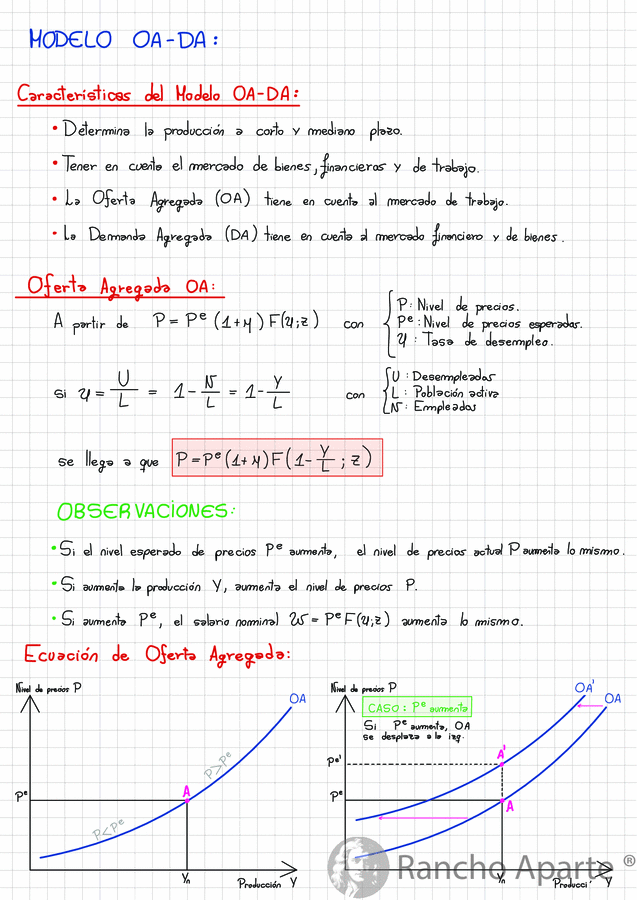 MODELO OA-DA:
Características del Modelo OA-DA:
• Determina la producción a corto y mediano plazo.
• Tener en cuenta el mercado de bienes, financieros y de trabajo.
• La Oferta Agregada (OA) tiene en cuenta al mercado de trabajo.
• La Demanda Agregada (DA) tiene en cuenta al mercado financiero y de bienes.
Oferta Agregada OA:
A partir de P = Pᵉ (1+μ) F(u;z) con { P: Nivel de precios.
Pᵉ: Nivel de precios esperados.
u: Tasa de desempleo.
si u = U/L = 1 - N/L = 1 - Y/L con { U: Desempleados
L: Población activa
N: Empleados
se llega a que P = Pᵉ (1+μ) F(1 - Y/L ; z)
OBSERVACIONES:
• Si el nivel esperado de precios Pᵉ aumenta, el nivel de precios actual P aumenta lo mismo.
• Si aumenta la producción Y, aumenta el nivel de precios P.
• Si aumenta Pᵉ, el salario nominal W = Pᵉ F(u;z) aumenta lo mismo.
Ecuación de Oferta Agregada:
Nivel de precios P
OA
P>Pᵉ
A
Pᵉ
P<Pᵉ
Yn
Producción Y
Nivel de precios P
OA'
OA
CASO: Pᵉ aumenta
Si Pᵉ aumenta, OA
se desplaza a la izq.
A'
Pᵉ'
Pᵉ
A
Yn
Producci Y
Rancho Aparte ®